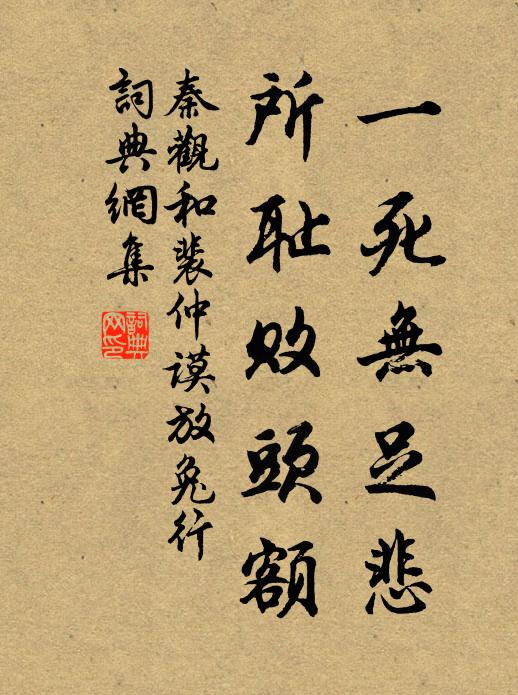 一死無足悲
所耻敗頭額
秦觀和裴仲謨放兔行
詞典網集
詞典网印